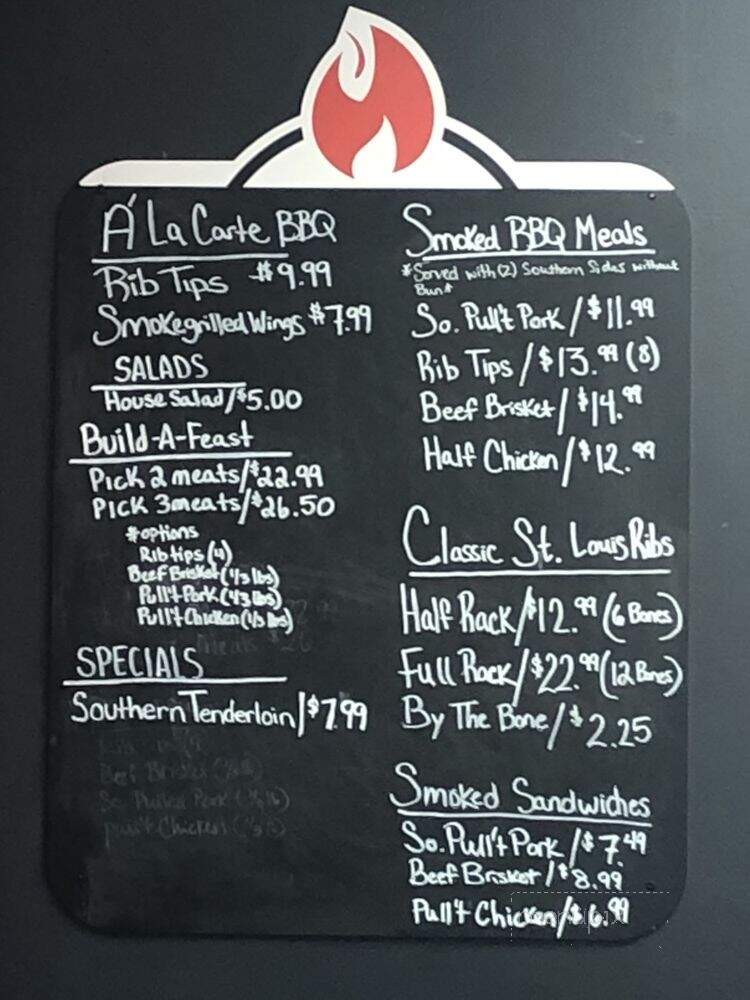 Á La Carte BBQ
Rib Tips $9.99
Smokegrilled Wings $7.99
SALADS
House Salad/$5.00
Build-A-Feast
Pick 2 meats/$22.99
Pick 3meats/$26.50
*options
Rib tips (4)
Beef Brisket (1/3 lbs)
Pull't Pork (1/3 lbs)
Pull't Chicken (1/3 lbs)
SPECIALS
Southern Tenderloin/$7.99
Beef Brisket
So. Pulled Pork
Pull't Chicken
Smoked BBQ Meals
*Served with (2) Southern Sides without
Bun*
So. Pull't Pork/$11.99
Rib Tips/$13.99 (8)
Beef Brisket/$14.99
Half Chicken/$12.99
Classic St. Louis Ribs
Half Rack/$12.99 (6 Bones)
Full Rack/$22.99 (12 Bones)
By The Bone/$2.25
Smoked Sandwiches
So. Pull't Pork/$7.49
Beef Brisket/$8.99
Pull't Chicken/$6.99